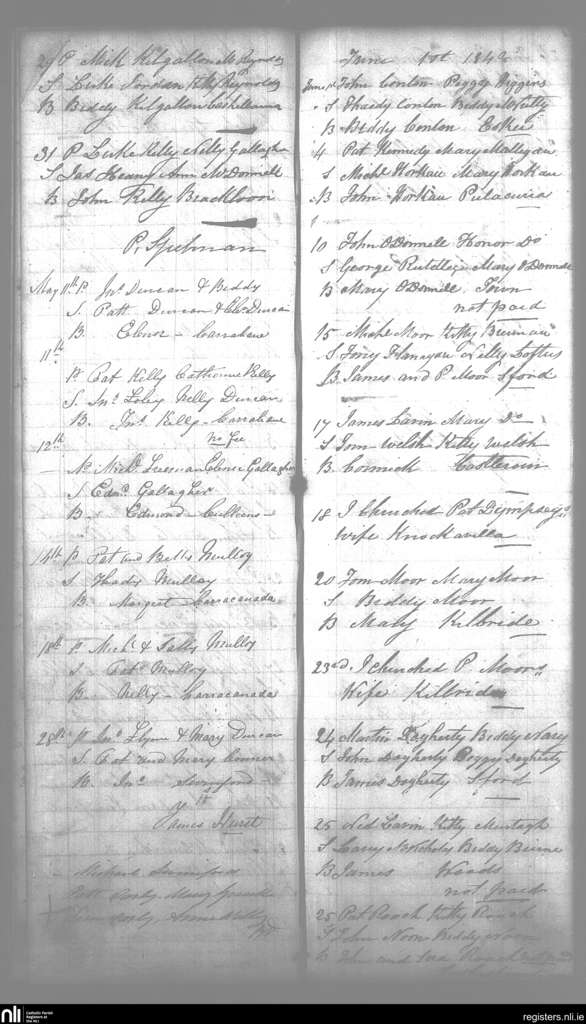 29 P Mick Kilgallon M Reynolds
S Luke Jordan Reynolds
B Biddy Kilgallon
31 P Luke Kelly Nelly Gallagher
S Jas Heany Ann McDonnell
B John Kelly Brackloon
P. Spelman
May 11th P. Jno Duncan & Biddy
S. Patt Duncan & Duncan
B. Elenor - Carrahane
11th
P. Pat Kelly Catherine Kelly
S Jno Foley Nelly Duncan
B. Jno Kelly - Carrahane
No Fee
12th
Michl Elenor Gallagher
S Edmd Gallagher
B. Edmond - Culleens
14th P Pat and Bells Mulloy
S Thady Mulloy
B. Margret - Carracanada
18th P Michl & Sally Mulloy
S Patt Mulloy
B. Nelly - Carracanada
28th P Jno Flynn & Mary Duncan
S. Pat and Mary Connor
B. Jno Swinford
James Hurst
Michael Swinford
Patt Mary
June 1st 1842
June 1st John Conlon Peggy Higgins
S Thady Conlon Biddy McNulty
B Biddy Conlon Esker
4 Pat Kennedy Mary Mulligan
S Michl Horkan Mary Horkan
B John Horkan
10 John O Donnell Honor Do
S George Rutellege Mary O Donnell
B Mary O Donnell Town
not paid
15 Michl Moor Kitty Brennan
S Torry Flanagan Nelly Loftus
B James and P Moor Sford
17 James Lavin Mary Do
S Tom Welsh Kitty Welsh
B Cormick Castleroin
18 I Churched Pat Dympseys
Wife Knockavilla
20 Tom Moor Mary Moor
S. Biddy Moor
B Mary Kilbride
23rd I churched P Moors
Wife Kilbride
24 Martin Dogherty Biddy Nary
S John Dogherty Peggy Dogherty
B James Dogherty Sford
25 Ned Lavin Kitty Murtagh
S Larry McNicholas Biddy Burne
B James Woods
not paid
25 Pat Roach Kitty Roach
S John Noon Biddy Noon
B John and Roach not paid
nli
Catholic Parish
Registers at
the NLI
registers.nli.ie